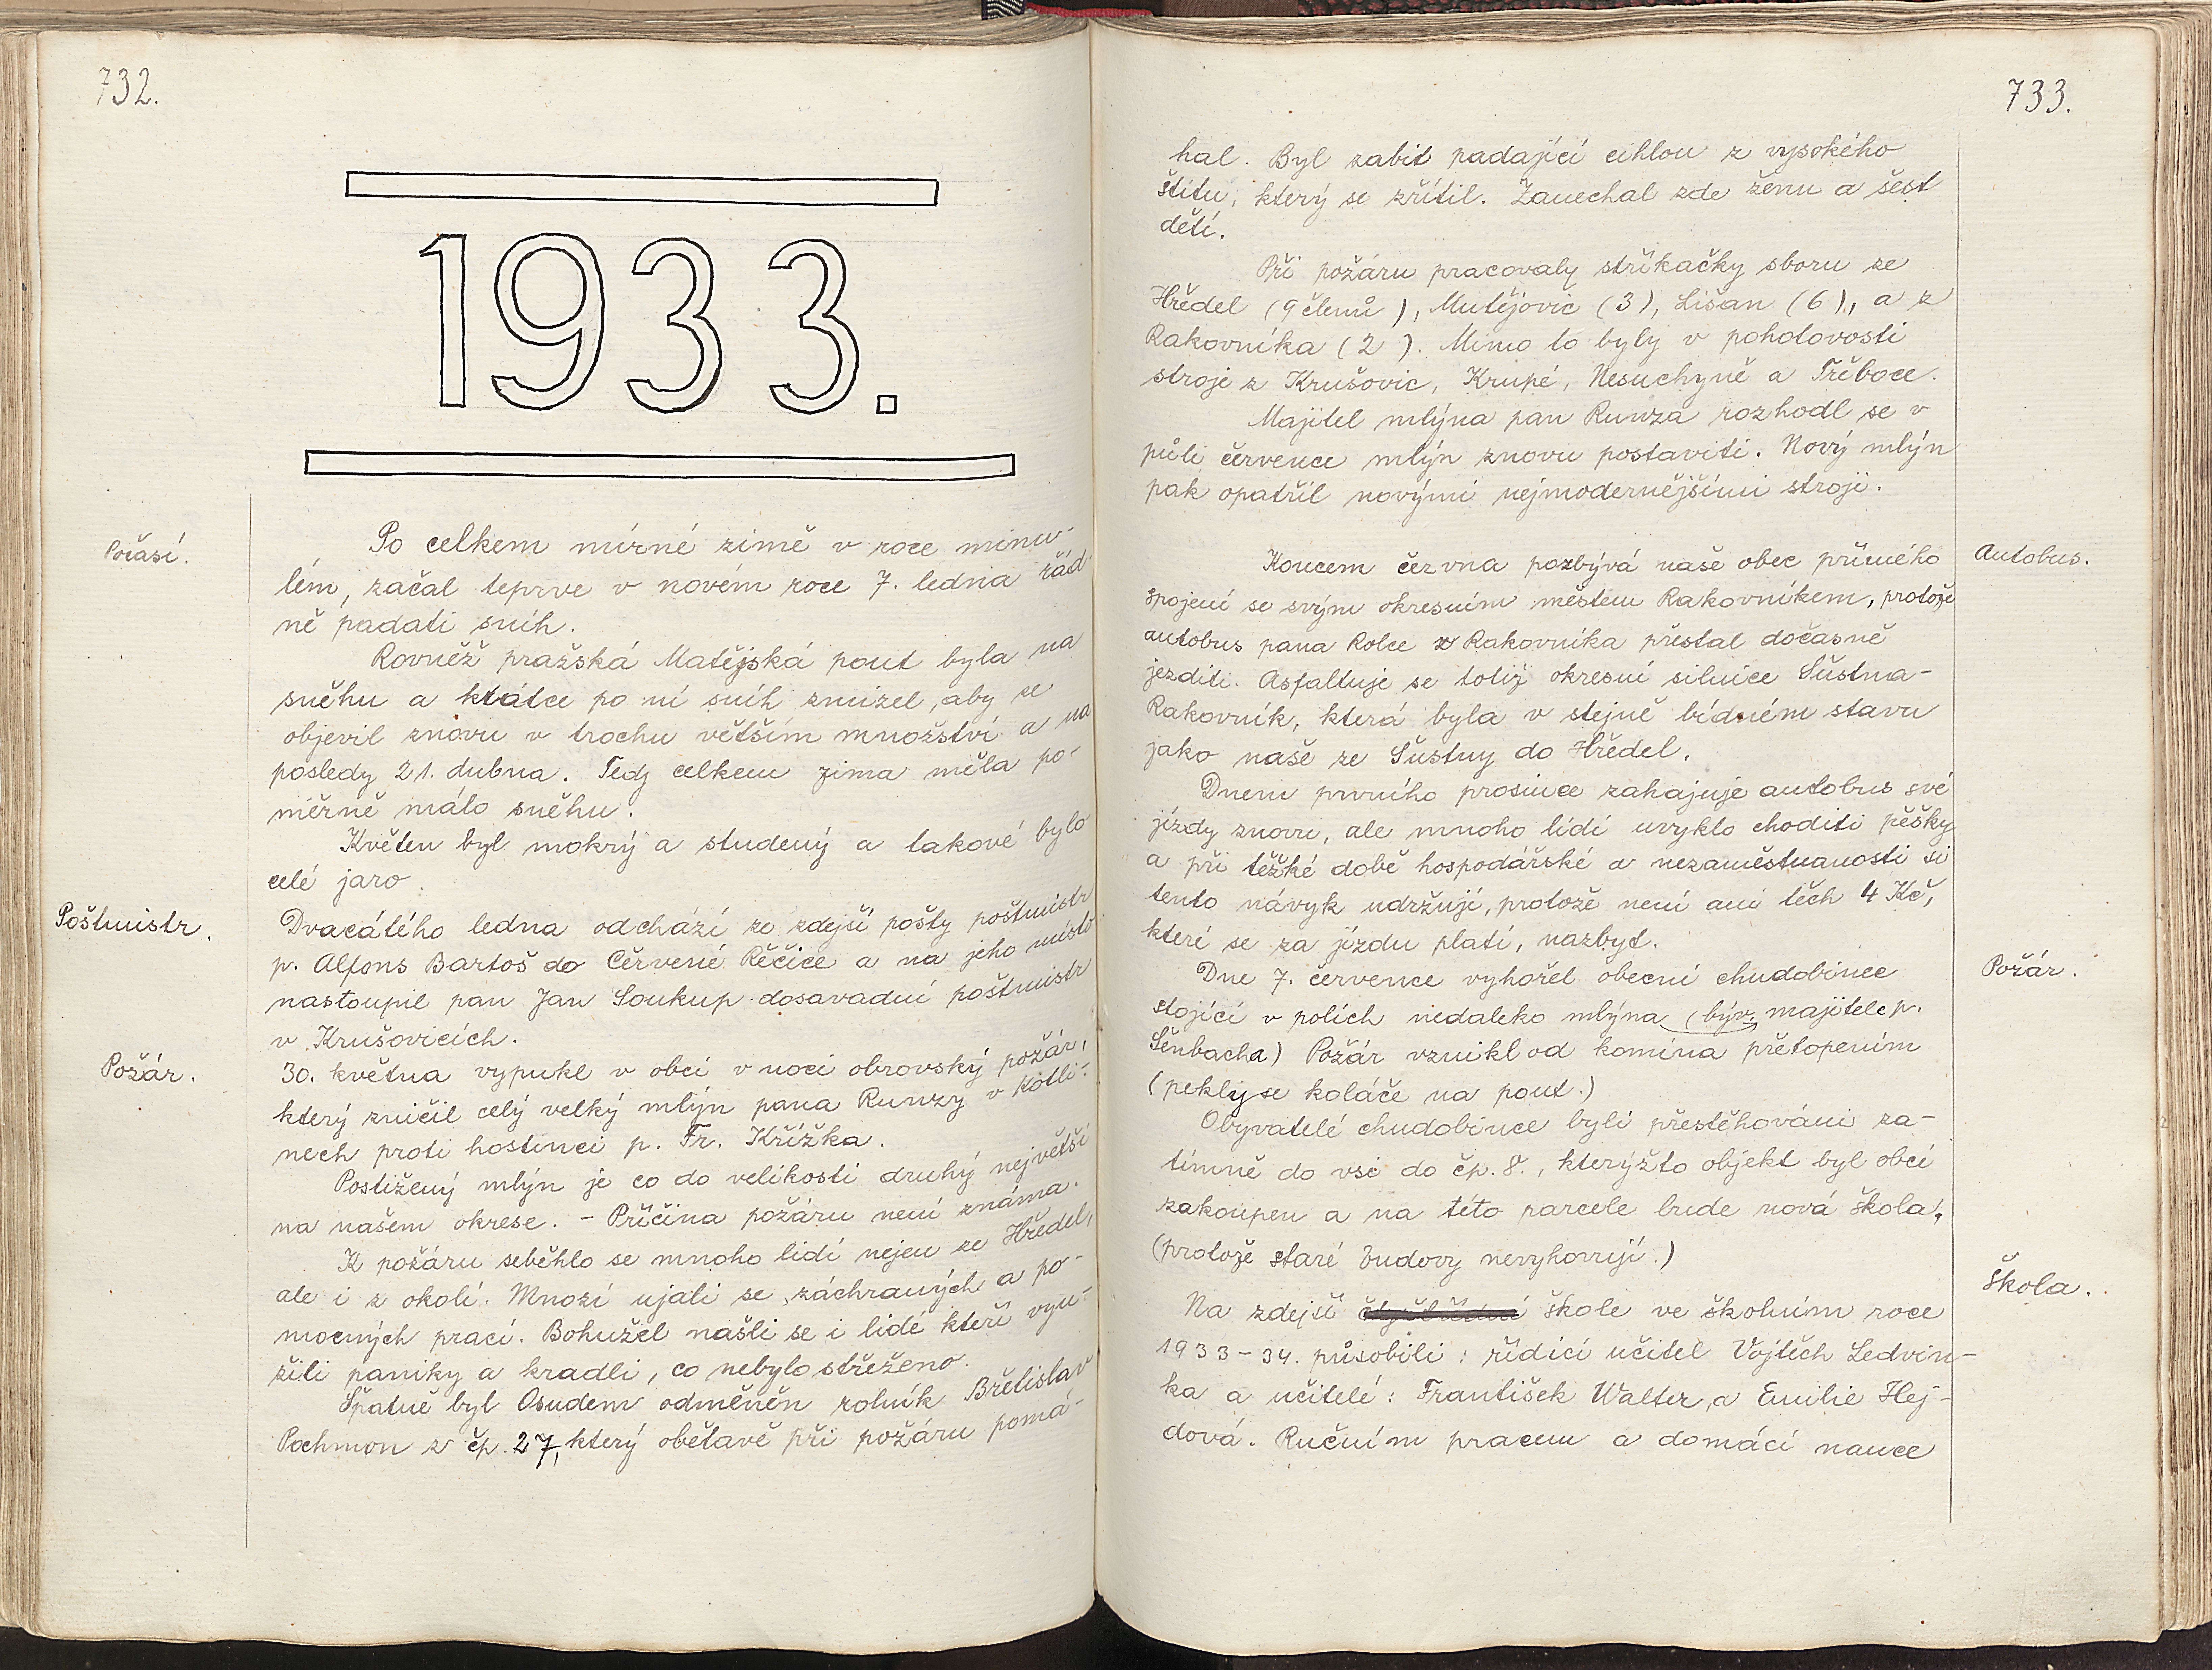 732.
1933.
Počasí.
Po celkem mírné zimě v roce minu-
lém, začal teprve v novém roce 7. ledna řád
ně padati sníh.
Rovněž pražská Matějská pout byla na
sněhu a krátce po ní sníh zmizel, aby se
objevil znovu v trochu větším množství a na
posledy 21. dubna. Tedy celkem zima měla po-
měrně málo sněhu.
Květen byl mokrý a studený a takové bylo
celé jaro.
Poštmistr.
Dvacátého ledna odchází ze zdejší pošty poštmistr
p. Alfons Bartoš do Červené Řečice a na jeho místě
nastoupil pan Jan Soukup dosavadní poštmistr
v Krušovicích.
Požár.
30. května vypukl v obci v noci obrovský požár,
který zničil celý velký mlýn pana Runzy v Kotli-
nech proti hostinci p. Fr. Křížka.
Postižený mlýn je co do velikosti druhý největší
na našem okrese. - Příčina požáru není známa.
K požáru seběhlo se mnoho lidí nejen ze Hředel,
ale i z okolí. Mnozí ujali se záchraných a po-
mocných prací. Bohužel našli se i lidé kteří vyu-
žili paniky a kradli, co nebylo střeženo.
Špatně byl Osudem odměněn rolník Břetislav
Pochmon z čp. 27, který obětavě při požáru pomá-
733.
hal. Byl zabit padající cihlou z vysokého
štítu, který se zřítil. Zanechal zde ženu a šest
dětí.
Při požáru pracovaly stříkačky sboru ze
Hředel (9 členů), Mutějovic (3), Lišan (6), a z
Rakovníka (2). Mimo to byly v pohotovosti
stroje z Krušovic, Krupé, Nesuchyně a Třeboce.
Majitel mlýna pan Runza rozhodl se v
půli července mlýn znovu postaviti. Nový mlýn
pak opatřil novými nejmodernějšími stroji.
Autobus.
Koncem června pozbývá naše obec přímého
spojení se svým okresním městem Rakovníkem, protože
autobus pana Rolce z Rakovníka přestal dočasně
jezditi. Asfaltuje se totiž okresní silnice Šustna-
Rakovník, která byla v stejně bídném stavu
jako naše ze Šustny do Hředel.
Dnem prvního prosince zahajuje autobus své
jízdy znovu, ale mnoho lidí uvyklo choditi pěšky
a při těžké době hospodářské a nezaměstnanosti si
tento návyk udržují, protože není ani těch 4 Kč,
které se za jízdu platí, nazbyt.
Požár.
Dne 7. července vyhořel obecní chudobinec
stojící v polích nedaleko mlýna (býv. majitele p.
Šenbacha) Požár vznikl od komína přetopením
(pekly se koláče na pout.)
Obyvatelé chudobince byli přestěhováni za-
tímně do vsi do čp. 8., kterýžto objekt byl obcí
zakoupen a na této parcele bude nová škola,
(protože staré budovy nevyhovují.)
Škola.
Na zdejší škole ve školním roce
1933-34. působili: řídící učitel Vojtěch Ledvin-
ka a učitelé: František Walter, a Emilie Hej-
dová. Ručním pracem a domácí nauce